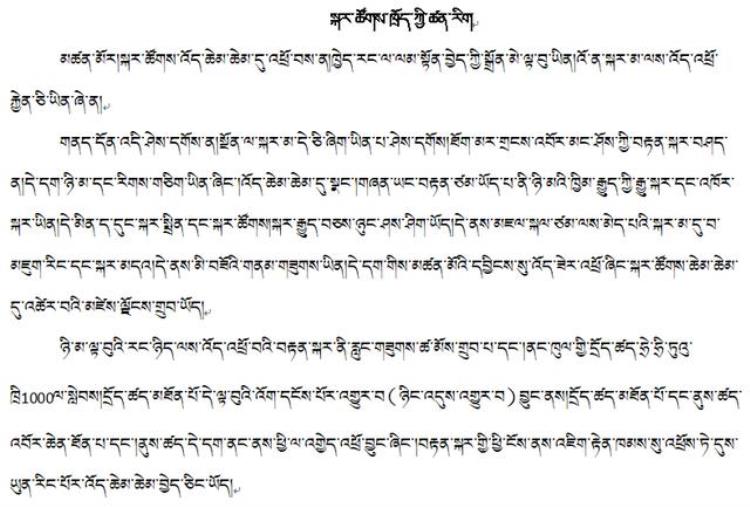 སྐར་ཚོགས་ཁྲོད་ཀྱི་ཚན་རིག
མཚན་མོར།སྐར་ཚོགས་འོད་ཆེམ་ཆེམ་དུ་འཕྲོ་བས་ན།ཁྱེད་རང་ལ་ལམ་སྟོན་བྱེད་ཀྱི་སྒྲོན་མེ་ལྟ་བུ་ཡིན།འོ་ན་སྐར་མ་ལས་འོད་འཕྲོ་
རྐྱེན་ཅི་ཡིན་ཞེ་ན།
གནད་དོན་འདི་ཤེས་དགོས་ན།སྔོན་ལ་སྐར་མ་དེ་ཅི་ཞིག་ཡིན་པ་ཤེས་དགོས།ཐོག་མར་གྲངས་འབོར་མང་ཤོས་ཀྱི་བརྟན་སྐར་བཤད་
ན།དེ་དག་ཉི་མ་དང་རིགས་གཅིག་ཡིན་ཞིང་།འོད་ཆེམ་ཆེམ་དུ་སྣང་།གཞན་ཡང་བརྟན་ཙམ་ཡོད་པ་ནི་ཉི་མའི་ཁྱིམ་རྒྱུད་ཀྱི་རྒྱུ་སྐར་དང་འཁོར་
སྐར་ཡིན།དེ་མིན་ད་དུང་སྐར་སྤྲིན་དང་སྐར་ཚོགས།སྐར་རྒྱུད་བཅས་ཉུང་ཤས་ཤིག་ཡོད།དེ་ནས་མཇལ་སྐལ་ཙམ་ལས་མེད་པའི་སྐར་མ་དུ་བ་
མཇུག་རིང་དང་སྐར་མདའ།དེ་ནས་མི་བཟོའི་གནམ་གཟུགས་ཡིན།དེ་དག་གིས་མཚན་མོའི་དབྱིངས་སུ་འོད་ཟེར་འཕྲོ་ཞིང་སྐར་ཚོགས་ཆེམ་ཆེམ་
དུ་འཚེར་བའི་མཛེས་ལྗོངས་གྲུབ་ཡོད།
ཉི་མ་ལྟ་བུའི་རང་ཉིད་ལས་འོད་འཕྲོ་བའི་བརྟན་སྐར་ནི་རླང་གཟུགས་ཚ་མོས་གྲུབ་པ་དང་།ནང་ཁུལ་གྱི་དྲོད་ཚད་ཧྲེ་ཧྲི་ཏུའུ་
ཁྲི1000ལ་སླེབས།དྲོད་ཚད་མཐོན་པོ་དེ་ལྟ་བུའི་འོག་དངོས་པོར་འགྱུར་བ(ཉིང་འདུས་འགྱུར་བ)བྱུང་ནས།དྲོད་ཚད་མཐོན་པོ་དང་ནུས་ཚད་
འབོར་ཆེན་ཐོན་པ་དང་།ནུས་ཚད་དེ་དག་ནང་ནས་ཕྱི་ལ་འགྱེད་འཕྲོ་བྱུང་ཞིང་།བརྟན་སྐར་གྱི་ཕྱི་ངོས་ནས་འཇིག་རྟེན་ཁམས་སུ་འཕྲོས་ཏེ་དུས་
ཡུན་རིང་པོར་འོད་ཆེམ་ཆེམ་བྱེད་ཅིང་ཡོད།